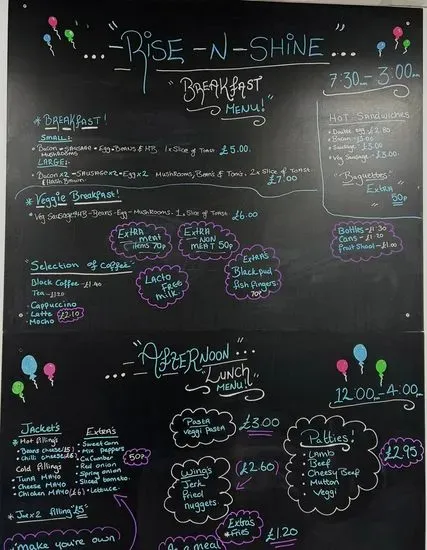 "RISE -N- SHINE"
"BREAKFAST
MENU!"
7:30am - 3:00pm
* BREAKFAST!
SMALL:
• BACON - SAUSAGE - EGG - BEANS & H/B, 1x SLICE OF TOAST £5.00
MUSHROOMS
LARGE:
• BACON x2 - SAUSAGE x2 - EGG x2 MUSHROOMS, BEANS & TOM'S. 2x SLICE OF TOAST
& HASH BROWN £7.00
* VEGGIE BREAKFAST!
• VEG SAUSAGE - H/B - BEANS - EGG - MUSHROOMS. 1 SLICE OF TOAST £6.00
HOT SANDWICHES
• DOUBLE EGG £2.80
• BACON £3.00
• SAUSAGE £3.00
• VEG SAUSAGE £3.00
"BAGUETTES"
EXTRA
50p
EXTRA
MEAT
ITEMS 70p
EXTRA
NON
MEAT 50p
BOTTLES - £1.30
CANS - £1.20
FRUIT SHOOT - £1.00
SELECTION OF COFFEE
BLACK COFFEE - £1.40
TEA - £1.20
CAPPUCCINO
LATTE £2.10
MOCHO
LACTO
FREE
MILK
EXTRA'S
BLACK PUD
FISH FINGERS
70p
"AFTERNOON
LUNCH
MENU!"
12:00pm - 4:00pm
JACKET'S
* HOT FILLING'S
• BEANS CHEESE (£5)
• CHILLI CHEESE (£6)
COLD FILLING'S
• TUNA MAYO
• CHEESE MAYO
• CHICKEN MAYO (£6)
* JKT x 2 FILLING "£5"
EXTRA'S
• SWEETCORN
• MIX PEPPERS
• CUCUMBER 50p
• RED ONION
• SPRING ONION
• SLICED TOMATO
• LETTUCE
PASTA
VEGGI PASTA £3.00
WING'S £2.60
JERK
FRIED
NUGGETS
PATTIES!
• LAMB
• BEEF
• CHEESY BEEF
• MUTTON
• VEGGI
£2.95
EXTRAS
*FRIES £1.20
"MAKE YOU'RE OWN
MEAL